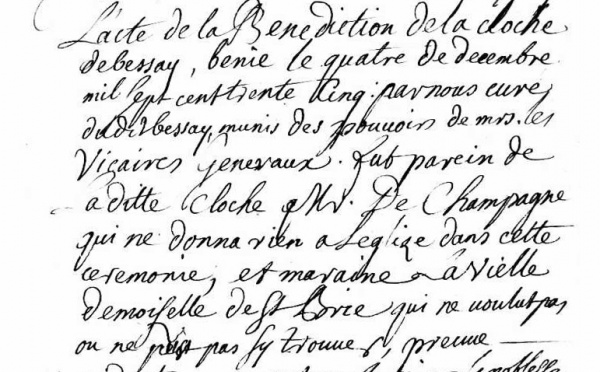 L'acte de la Benediction de la cloche
debessay, benie le quatre de decembre
mil sept cent trente cinq. par nous curez
dudit bessay, munis des pouvoirs de mrs. les
Vicaires Generaux. fut parein de
laditte Cloche Mr. De Champagne
qui ne donna rien a Leglize dans cette
ceremonie, et maraine la vielle
demoiselle de St qui ne voulut pas
ou ne pas sy trouver, preuve